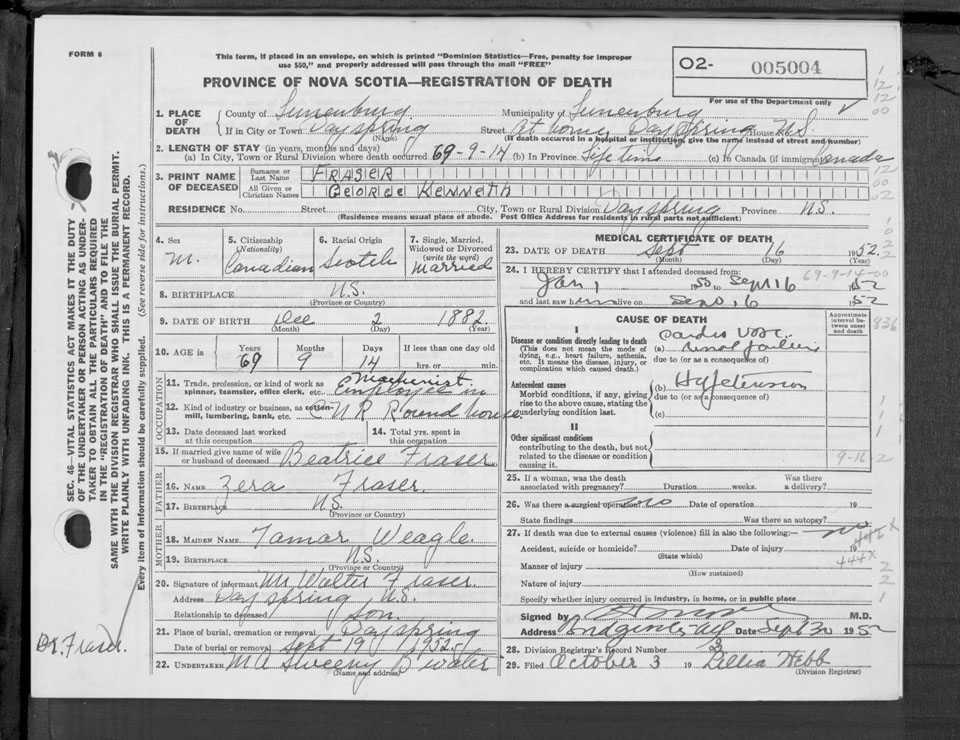 FORM 6
This form, if placed in an envelope, on which is printed "Dominion Statistics—Free, penalty for improper
use $50," and properly addressed will pass through the mail "FREE"
PROVINCE OF NOVA SCOTIA—REGISTRATION OF DEATH
O2- 005004
For use of the Department only
1. PLACE OF DEATH County of Lunenburg Municipality of Lunenburg
If in City or Town Dayspring Street At home, Dayspring House N.S.
(Name) (If death occurred in a hospital or institution, give the name instead of street and number)
2. LENGTH OF STAY (in years, months and days)
(a) In City, Town or Rural Division where death occurred 69-9-14 (b) In Province Life time (c) In Canada (if immigrant) Canada
3. PRINT NAME OF DECEASED Surname or Last Name FRASER
All Given or Christian Names GEORGE KENNETH
RESIDENCE No. Street City, Town or Rural Division Dayspring Province N.S.
(Residence means usual place of abode. Post Office Address for residents in rural parts not sufficient)
4. Sex M.
5. Citizenship (Nationality) Canadian
6. Racial Origin Scotch
7. Single, Married, Widowed or Divorced (write the word) Married
8. BIRTHPLACE N.S.
(Province or County)
9. DATE OF BIRTH Dec 2 1882
(Month) (Day) (Year)
10. AGE in Years 69 Months 9 Days 14 If less than one day old
hrs. or min.
OCCUPATION
11. Trade, profession, or kind of work as spinner, teamster, office clerk, etc. Machinist Employee in
12. Kind of industry or business, as cotton-mill, lumbering, bank, etc. C N R Round house
13. Date deceased last worked at this occupation
14. Total yrs. spent in this occupation
15. If married give name of wife or husband of deceased Beatrice Fraser
FATHER
16. NAME Zera Fraser.
17. BIRTHPLACE N.S.
(Province or Country)
MOTHER
18. MAIDEN NAME Tamar Weagle
19. BIRTHPLACE N.S.
(Province or Country)
20. Signature of informant Mr Walter Fraser.
Address Dayspring N.S.
Relationship to deceased Son.
21. Place of burial, cremation or removal Dayspring
Date of burial or removal Sept 19 1952
22. UNDERTAKER M A Sweeny B'water
(Name and address)
MEDICAL CERTIFICATE OF DEATH
23. DATE OF DEATH Sept 16 1952
(Month) (Day)
24. I HEREBY CERTIFY that I attended deceased from:
69-9-14-00
Jan 1 1950 to Sept 16 1952
and last saw him alive on Sept 16 1952
CAUSE OF DEATH
Approximate interval between onset and death
I
Disease or condition directly leading to death
(This does not mean the mode of dying, e.g., heart failure, asthenia, etc. It means the disease, injury, or complication which caused death.)
(a) renal failure
due to (or as a consequence of)
836
Antecedent causes
Morbid conditions, if any, giving rise to the above cause, stating the underlying condition last.
(b) Hypertension
due to (or as a consequence of)
(c)
II
Other significant conditions
contributing to the death, but not related to the disease or condition causing it.
9-16 2
25. If a woman, was the death associated with pregnancy? Duration weeks. Was there a delivery?
26. Was there a surgical operation? no Date of operation 19
State findings Was there an autopsy?
27. If death was due to external causes (violence) fill in also the following:— no
Accident, suicide or homicide? Date of injury 19
(State which)
446X
Manner of injury
444X
(How sustained)
Nature of injury
Specify whether injury occurred in industry, in home, or in public place
Signed by M.D.
Address Date Sept 30 1952
28. Division Registrar's Record Number 3
29. Filed October 3 19 Lillia Hebb
(Division Registrar)
SEC. 46—VITAL STATISTICS ACT MAKES IT THE DUTY
OF THE UNDERTAKER OR PERSON ACTING AS UNDER-
TAKER TO OBTAIN ALL THE PARTICULARS REQUIRED
IN THE "REGISTRATION OF DEATH" AND TO FILE THE
SAME WITH THE DIVISION REGISTRAR WHO SHALL ISSUE THE BURIAL PERMIT.
WRITE PLAINLY WITH UNFADING INK. THIS IS A PERMANENT RECORD.
Every item of information should be carefully supplied. (See reverse side for instructions.)